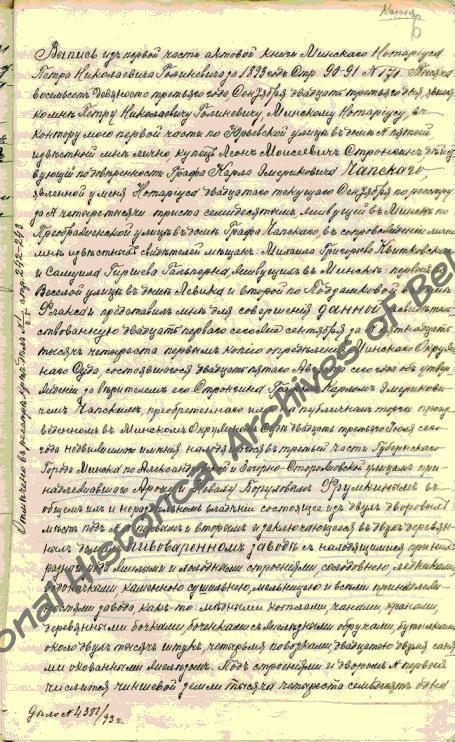 Копія
6
Выпись изъ первой части актовой книги Минскаго Нотаріуса
Петра Николаевича Голиневича за 1893 годъ Стр. 90-91 № 171. Тысяча
восемьсотъ девяносто третьяго года Сентября двадцать третьяго дня явился
ко мнѣ Петру Николаевичу Голиневичу, Минскому Нотаріусу, въ
контору мою первой части по Юрьевской улицѣ въ домѣ № пятый
извѣстный мнѣ лично купецъ Леонъ Моисеевичъ Стронгинъ дѣйст
вующій по довѣренности Графа Карла Эмериковича Чапскаго
явленной у меня Нотаріуса двадцатаго текущаго Сентября по реестру
за № четыре тысячи триста семидесятымъ живущій въ Минскѣ по
Преображенской улицѣ въ домѣ Графа Чапскаго въ сопровожденіи лично
мнѣ извѣстныхъ свидѣтелей мѣщанъ Михаила Григорьева Квитковскаго
и Самуила Гиршева Гальперна живущихъ въ Минскѣ: первой по
Веселой улицѣ въ домѣ Левика и второй по Подзамковой
Флакса и представилъ мнѣ для совершенія данной
ствованную двадцать перваго сего Сентября за № пятнадцать
тысячъ четыреста первымъ копію опредѣленія Минскаго Окружна
го Суда, состоявшагося двадцать пятаго Августа сего года объ утвер
жденіи за вѣрителемъ его Стронгина Графомъ Карломъ Эмерикови
чемъ Чапскимъ, пріобрѣтеннаго имъ съ публичнаго торга произ
веденномъ въ Минскомъ Окружномъ Судѣ двадцать третьяго Іюля сего
года недвижимаго имѣнія находящагося въ третьей части Губернскаго
Города Минска по Александровской и Загорно-Сторожевской улицамъ при
надлежавшаго Арону и Товалу Боруховымъ Фрумкинымъ въ
общемъ ихъ и нераздѣльномъ владѣніи состоящее изъ двухъ дворовыхъ
мѣстъ подъ № первымъ и вторымъ и заключающееся въ двухъ деревян
ныхъ домахъ пивоваренномъ заводѣ съ находящимися при нихъ
разнаго рода жилыми и нежилыми строеніями, солодовнею, ледниками,
каменною сушильнею, мельницею и всѣми принадлеж
ностями завода, какъ то: мѣдными котлами, чанами, кранами,
деревянными бочками, боченками съ желѣзными обручами, бутылками
около двухъ тысячъ штукъ, четырьмя повозками, двадцатью двумя саня
ми окованными желѣзомъ. Подъ строеніями и дворомъ № первой
числится чиншевой земли тысяча четыреста семьдесятъ одна
Отмѣчено въ реестрѣ крѣп. дѣлъ
стр. 212-213
Дѣло № 4381/93 г.
National Historical Archives of Bel